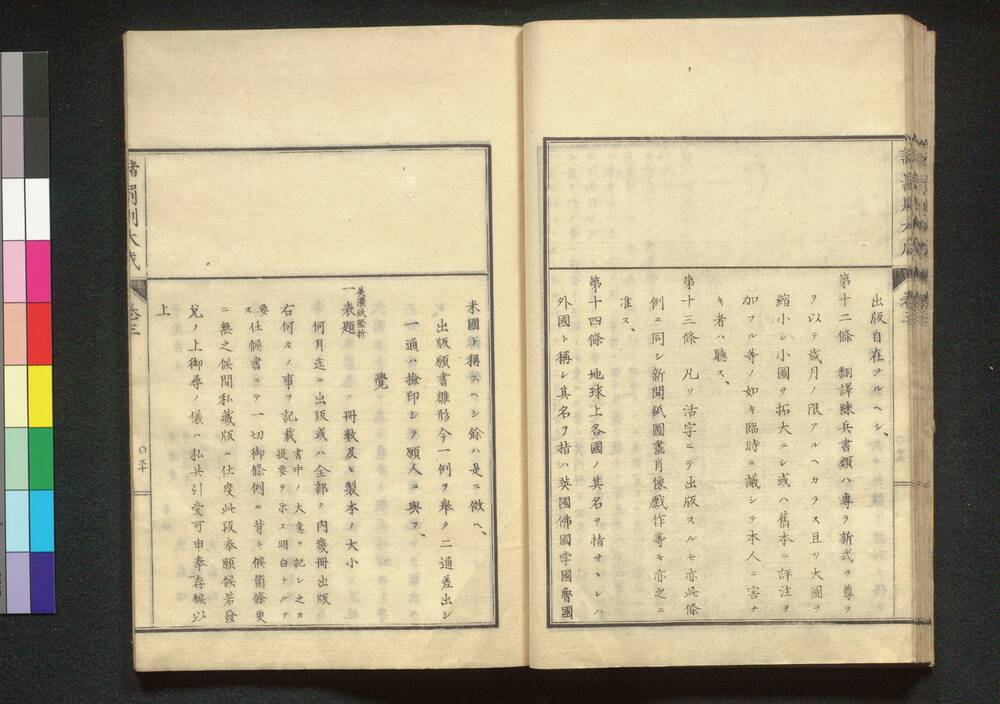 出版自在タルヘシ、
第十二條 翻譯練兵書類ハ專ラ新式ヲ尊ヲ
ヲ以テ歳月ノ限アルヘカラス且ツ大圖ヲ
縮小シ小圖ヲ拓大ニシ或ハ舊本ニ評注ヲ
加フル等ノ如キ臨時ニ議シテ本人ニ害ナ
キ者ハ聽ス、
第十三條 凡ソ活字ニテ出版スルモ亦此條
例ニ同シ新聞紙圖畫肖像戲作等モ亦之ニ
准ス、
第十四條 地球上各國ノ其名ヲ指サヽレハ
外國ト稱シ其名ヲ指ハ英國佛國孛國魯國
米國ト稱スヘシ餘ハ是ニ傚ヘ、
出版願書雛形今一例ヲ擧ク二通差出シ
一通ハ撿印シヲ願人ニ與フ、
覺
美濃紙竪折
一表題 冊數及ヒ製本ノ大小
何月迄ニ出版或ハ全部ノ内幾冊出版
右何々ノ事ヲ記載 書中ノ大意ヲ記シ之カ
提要ヲ示ス明白ナルヲ
要ス
仕候書ニテ一切御條例ニ背キ候箇條更
ニ無之候間私藏版ニ仕度此段奉願候若發
兌ノ上御尋ノ儀ハ私共引受可申奉存候以
上
諸罰則大成
卷三